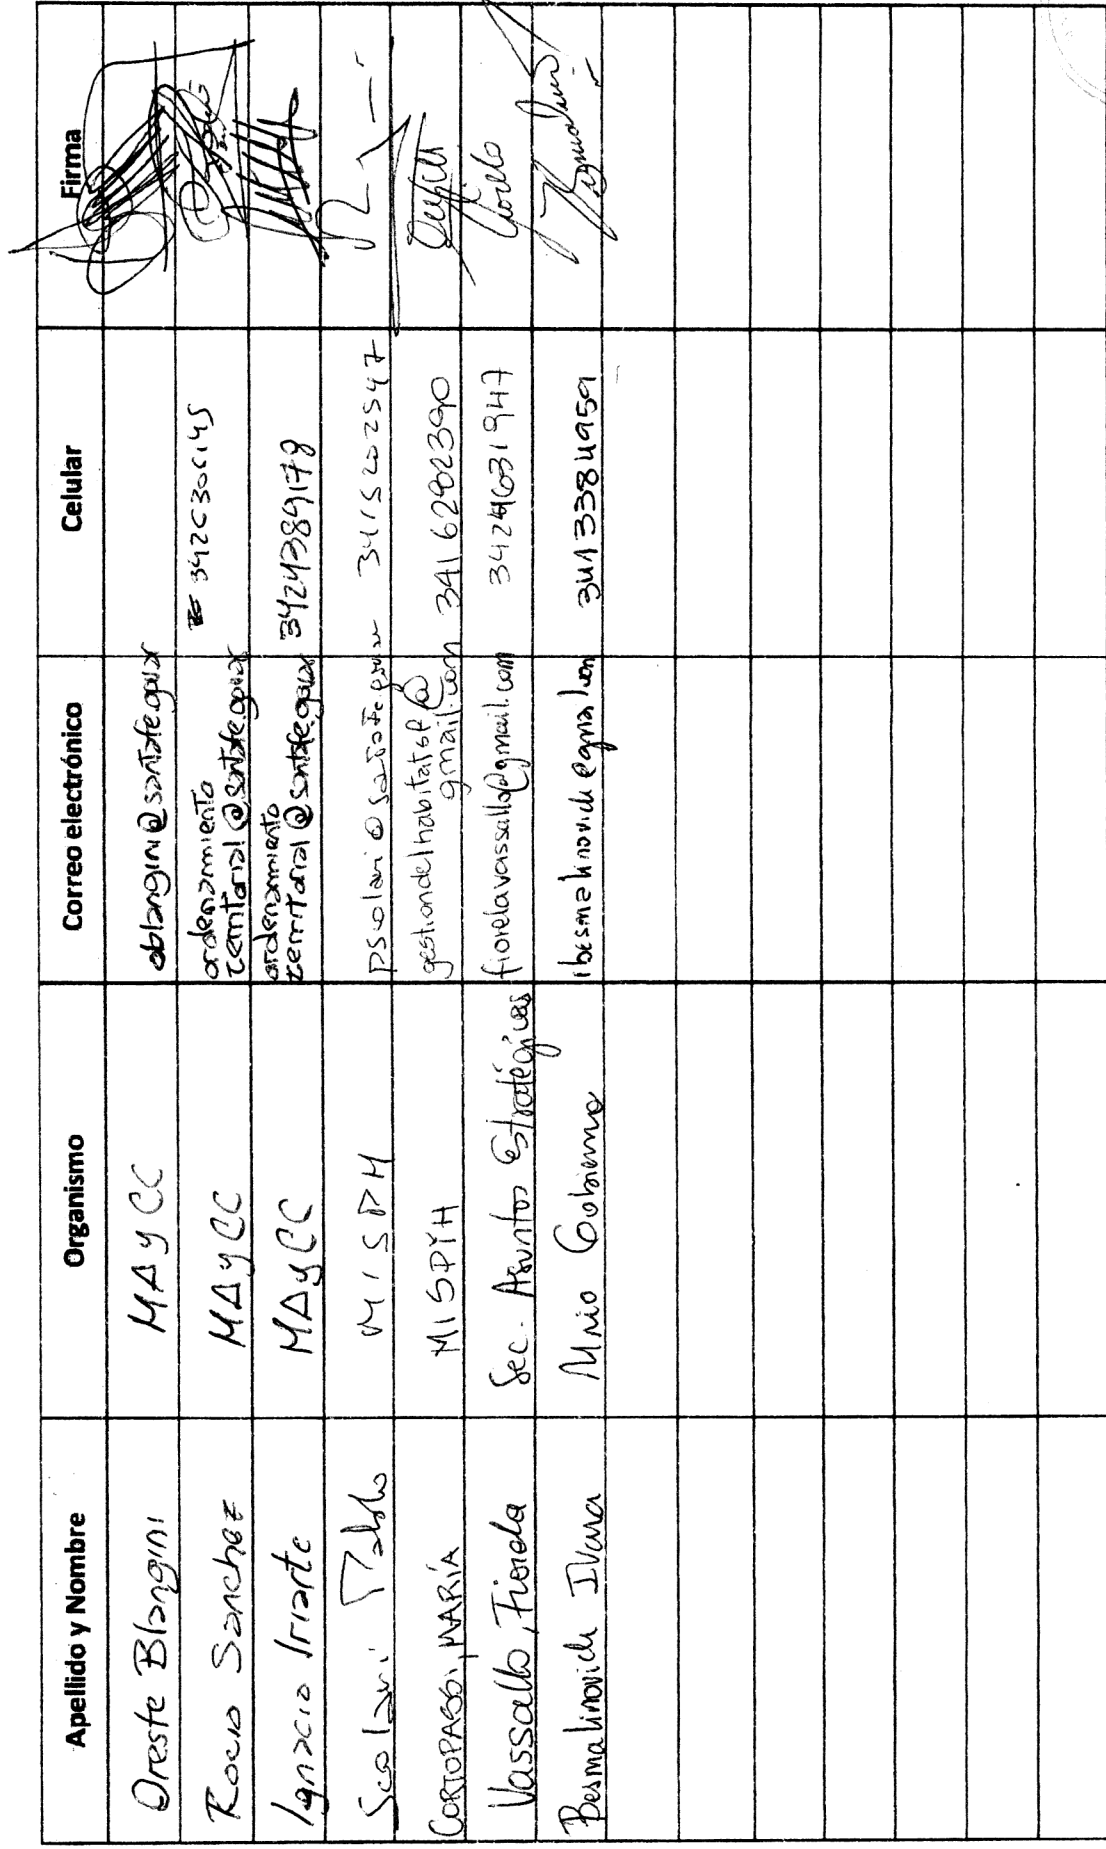 Apellido y Nombre Organismo Correo electrónico Celular Firma
Oreste Blangini MAyCC oblangini@santafe.gov.ar
Rocio Sanchez MAyCC ordenamiento
territorial@santafe.gov.ar
Ignacio Iriarte MAyCC ordenamiento
territorial@santafe.gov.ar 3424389178
Scolari Pablo MISPH pscolari@santafe.gov.ar 3415202547
CORTOPASSI, MARÍA MISPYH gestiondelhabitatsf@
gmail.com 3416292390
Vassallo, Fiorela Sec. Asuntos Estratégicos fiorelavassallo@gmail.com Fiorella
Besmalinovich Ivana Mrio Gobierno 3413384959